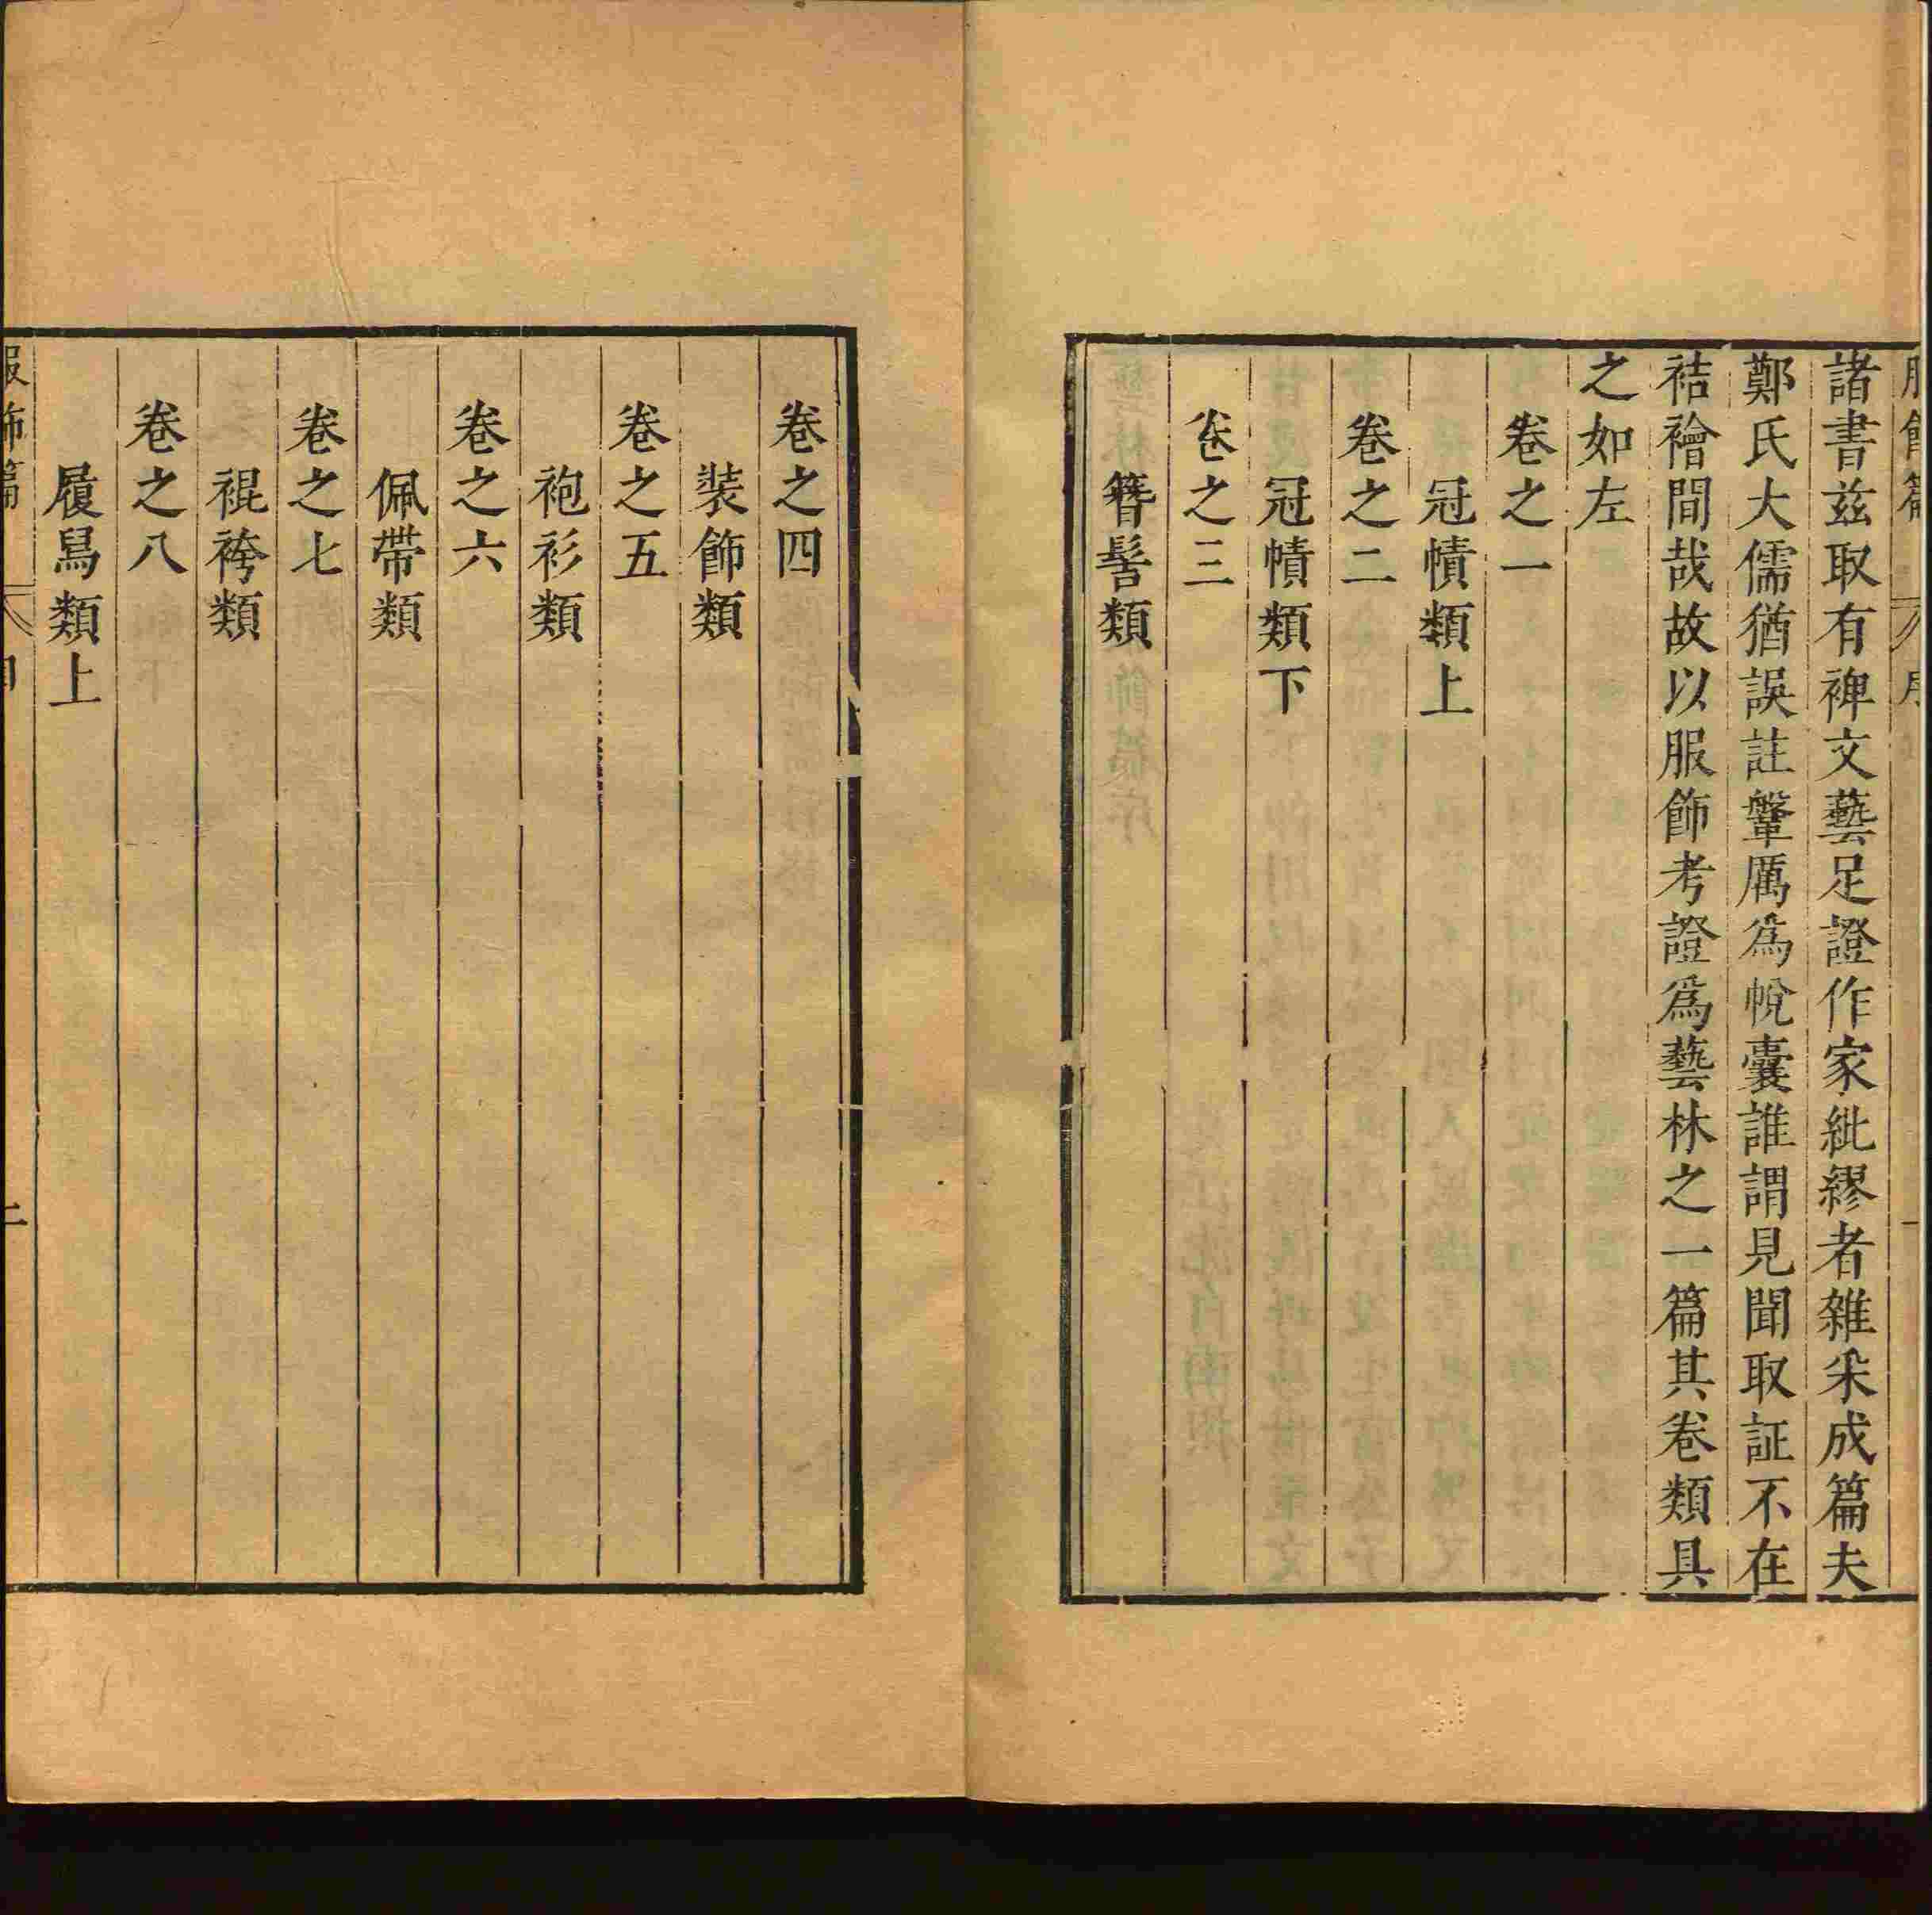 諸書茲取有裨文藝足證作家紕繆者雜采成篇夫
鄭氏大儒猶誤註鞶厲為帨囊誰謂見聞取証不在
袺襘間哉故以服飾考證爲藝林之一篇其卷類具
之如左
卷之一
冠幘類上
卷之二
冠幘類下
卷之三
簪髻類
卷之四
裝飾類
卷之五
袍衫類
卷之六
佩帶類
卷之七
裩袴類
卷之八
履舄類上